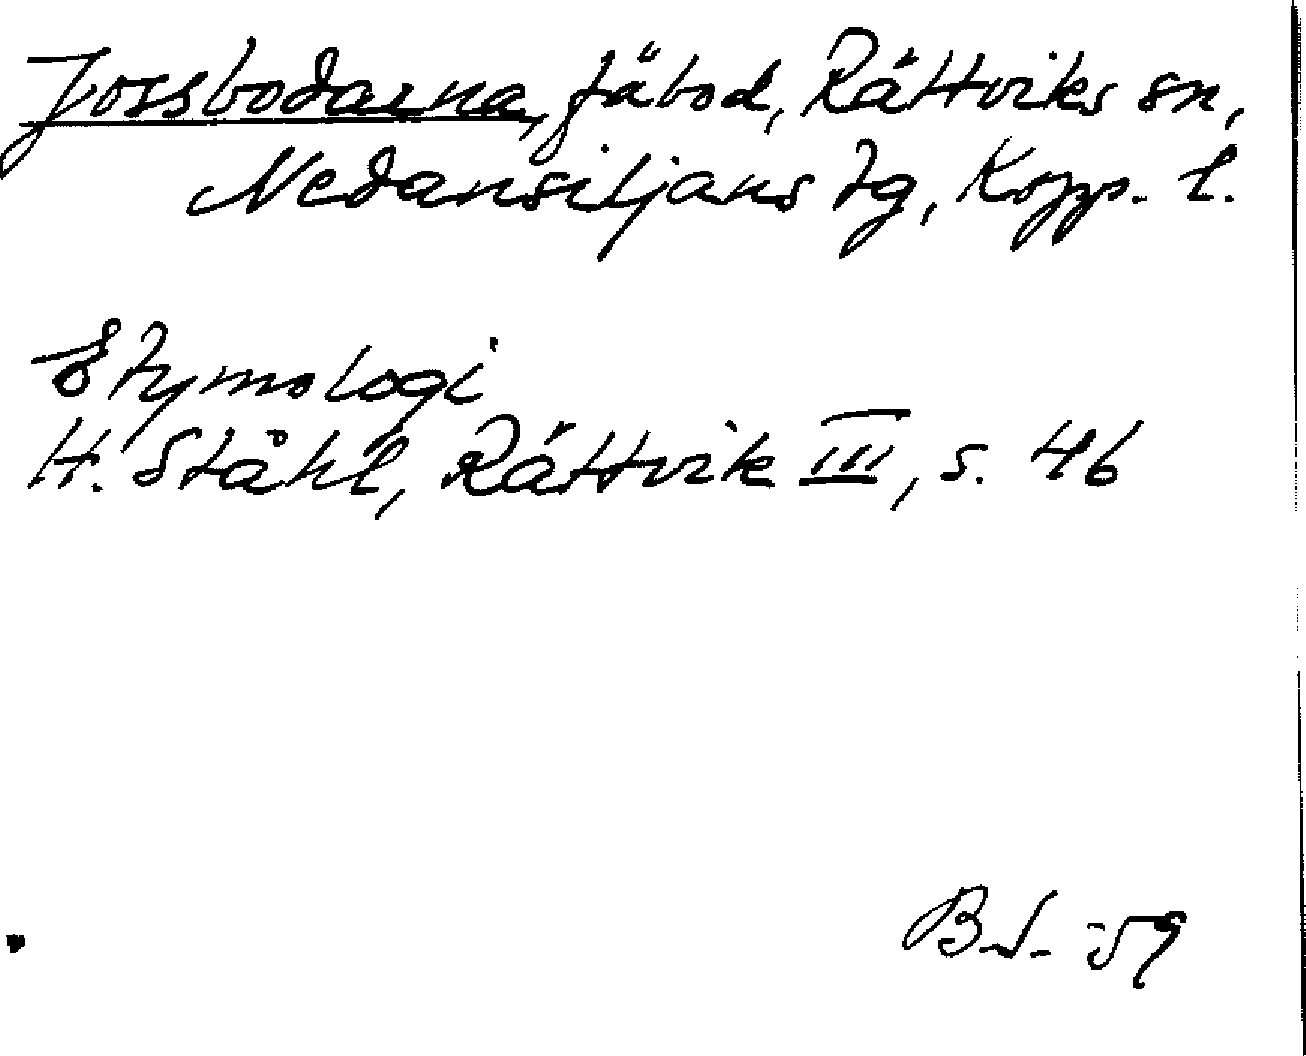 Jossbodarna, fäbod, Rättviks sn,
Nedansiljans tg, Kopp. l.
Etymologi
H. Ståhl, Rättvik III, s. 46
B.L. 59